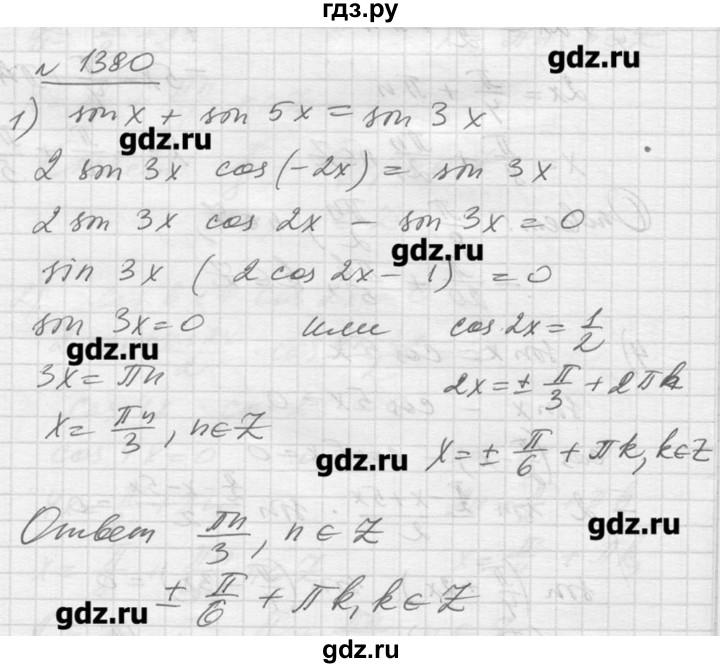 гдз.ру
№ 1380
gdz.ru
1) sin x + sin 5x = sin 3x
gdz.ru
2 sin 3x cos(-2x) = sin 3x
2 sin 3x cos 2x - sin 3x = 0
gdz.ru
sin 3x ( 2 cos 2x - 1) = 0
sin 3x = 0 или cos 2x = 1/2
gdz.ru
3x = πn 2x = ± π/3 + 2πk
x = πn/3, n ∈ Z x = ± π/6 + πk, k ∈ Z
gdz.ru
Ответ πn/3, n ∈ Z
gdz.ru
± π/6 + πk, k ∈ Z
gdz.ru
gdz.ru